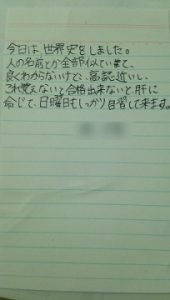 今日は世界史をしました。
人の名前とか全部似ていて、
良くわからないけど、高認近いし、
これ覚えないと合格出来ないと、肝に
命じて、日曜日もしっかり自習して来ます。